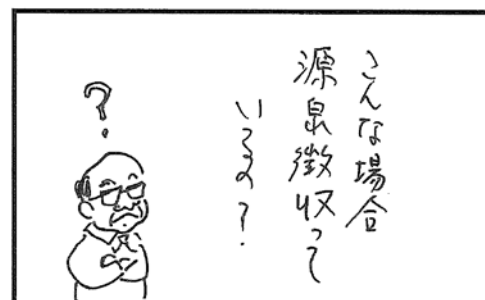 こんな場合
源泉徴収って
いるの？
？